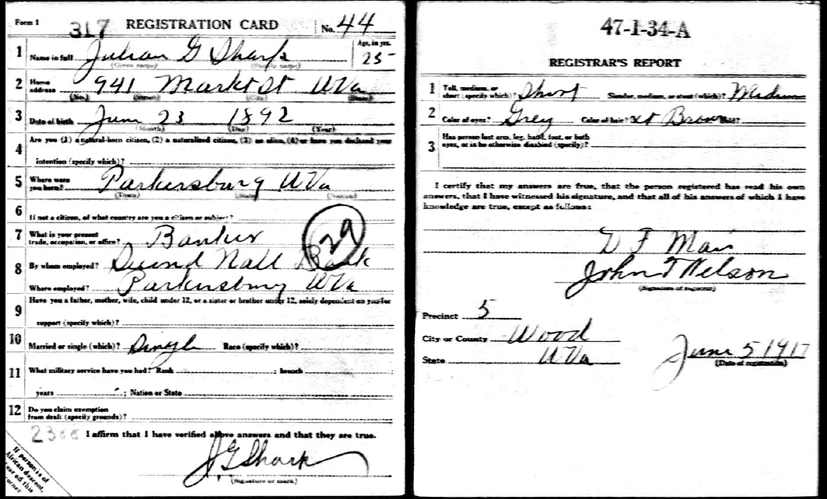 Form 1 317 REGISTRATION CARD No. 44
1 Name in full Julian G Sharp Age, in yrs. 25
(Given name) (Family name)
2 Home address 941 Markt St W Va
(No.) (Street) (City) (State)
3 Date of birth June 23 1892
(Month) (Day) (Year)
4 Are you (1) a natural-born citizen, (2) a naturalized citizen, (3) an alien, (4) or have you declared your
intention (specify which)?
5 Where were you born? Parkersburg W Va
(Town) (State) (Nation)
6 If not a citizen, of what country are you a citizen or subject?
7 What is your present trade, occupation, or office? Banker 29
8 By whom employed? Second Natl Bank
Where employed? Parkersburg W Va
9 Have you a father, mother, wife, child under 12, or a sister or brother under 12, solely dependent on you for
support (specify which)?
10 Married or single (which)? Single Race (specify which)?
11 What military service have you had? Rank ; branch
years ; Nation or State
12 Do you claim exemption from draft (specify grounds)?
I affirm that I have verified above answers and that they are true.
J G Sharp
(Signature or mark)
If person is of
African descent,
tear off this
corner
47-1-34-A
REGISTRAR'S REPORT
1 Tall, medium, or short (specify which)? Short Slender, medium, or stout (which)? Medium
2 Color of eyes? Grey Color of hair? Lt Brown Bald?
3 Has person lost arm, leg, hand, foot, or both eyes, or is he otherwise disabled (specify)?
I certify that my answers are true, that the person registered has read his own
answers, that I have witnessed his signature, and that all of his answers of which I have
knowledge are true, except as follows:
John T Nelson
(Signature of registrar)
Precinct 5
City or County Wood
State W Va June 5 1917
(Date of registration)